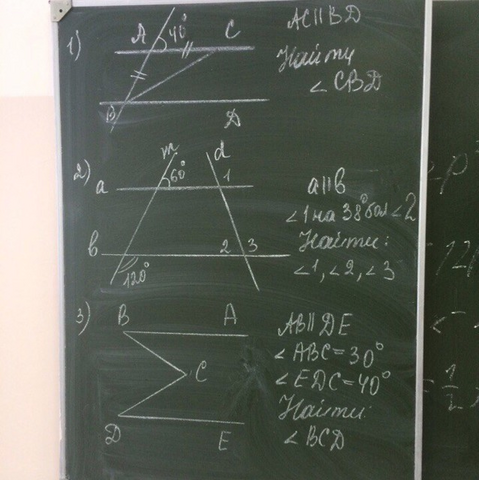 1)
A 40° C
B
D
AC || BD
Найти
∠ CBD
2)
m d
a 60° 1
b 2 3
120°
a||b
∠1 на 38° бол ∠2
Найти:
∠1, ∠2, ∠3
3)
B A
C
D E
AB || DE
∠ABC = 30°
∠EDC = 40°
Найти:
∠BCD